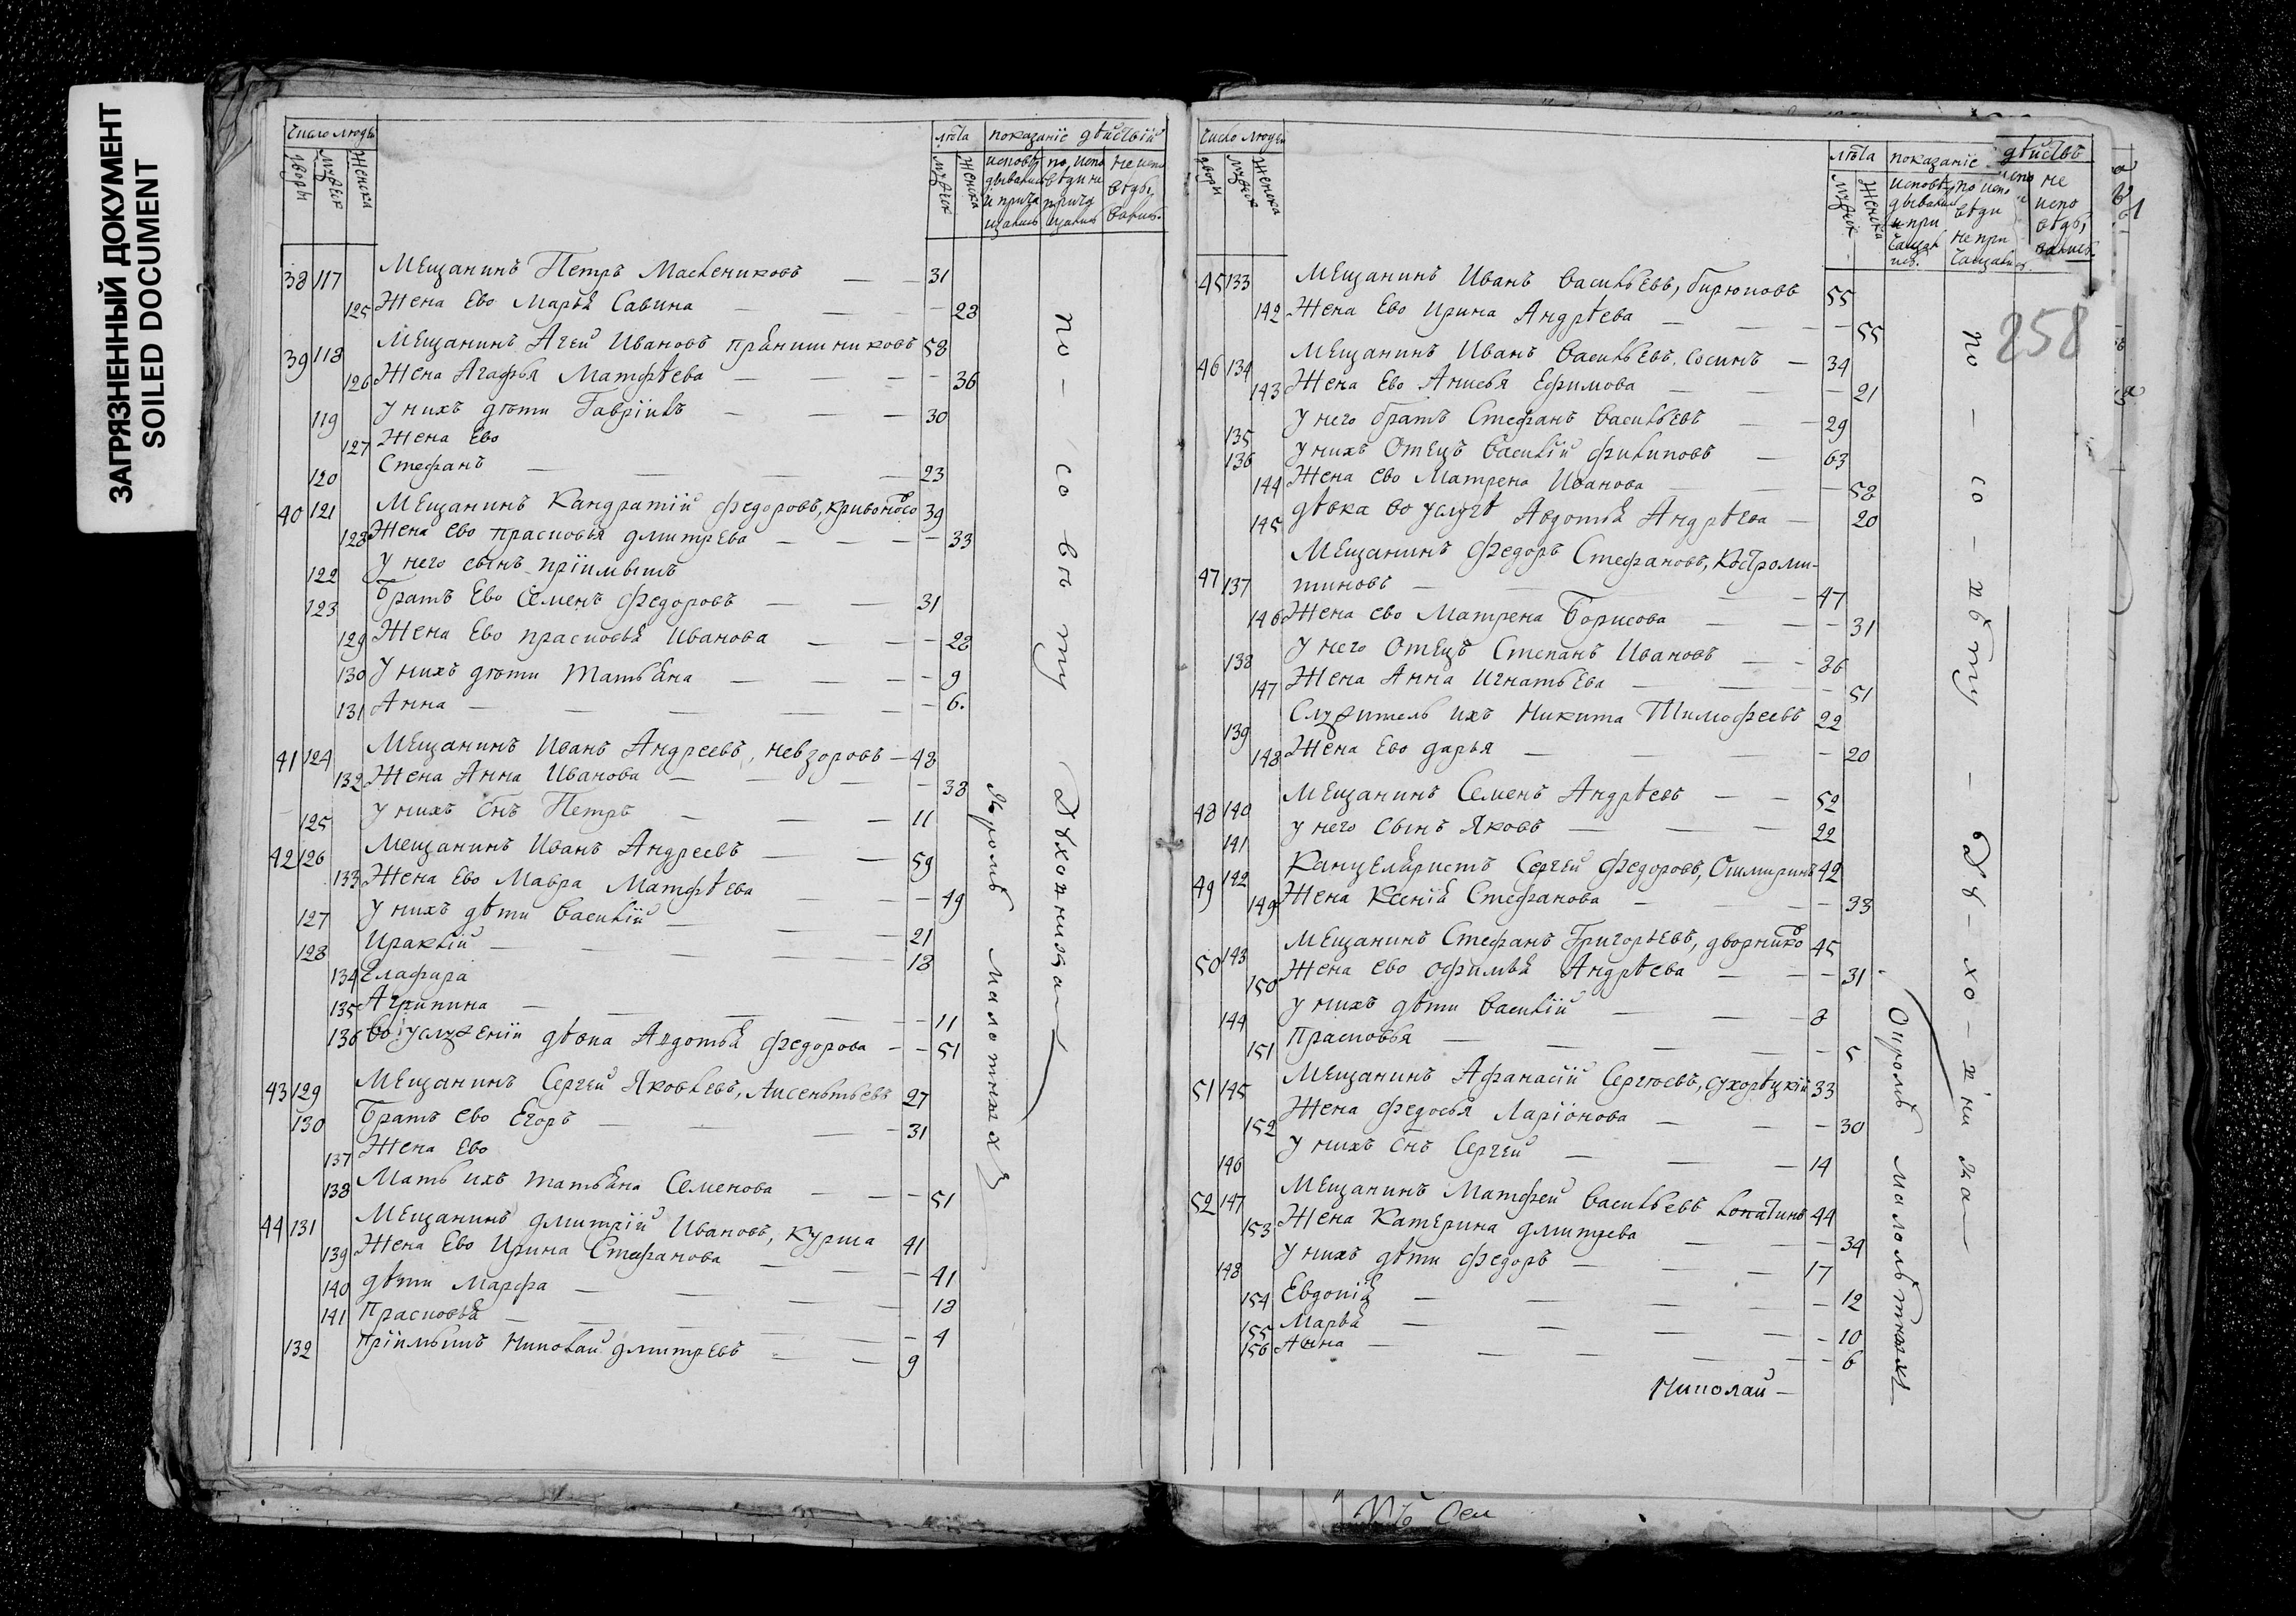 ЗАГРЯЗНЕННЫЙ ДОКУМЕНТ
SOILED DOCUMENT
число людѣй
лѣта
показаніе дѣйствій
дворы
мужеск
женска
мужеск
женска
38 117 Мещанинъ Петръ Маслениковъ — 31
125 Жена Ево Марья Савина — 28
39 118 Мещанинъ Агей Ивановъ Прянишниковъ 58
126 Жена Агафья Матфѣева — 36
119 У нихъ дѣти Гаврiилъ — 30
127 Жена Ево
120 Стефанъ — 23
40 121 Мещанинъ Кандратiй Федоровъ, Кривоносо 39
128 Жена Ево Прасковья Дмитрева — 33
122 У него сынъ прiимышъ
123 Братъ Ево Семенъ Федоровъ — 31
129 Жена Ево Прасковья Иванова — 28
130 У нихъ дѣти Татьяна — 9
131 Анна — 6.
41 124 Мещанинъ Иванъ Андреевъ, Невзоровъ — 48
132 Жена Анна Иванова — 38
125 У нихъ снъ Петръ — 11
42 126 Мещанинъ Иванъ Андреевъ — 59
133 Жена Ево Мавра Матфѣева — 49
127 У нихъ дѣти Василiй — 21
128 Ираклiй — 18
134 Глафира
135 Агрипина — 11
136 Во услуженiи дѣвка Авдотья Федорова — 51
43 129 Мещанинъ Сергей Яковлевъ, Аксентьевъ 27
130 Братъ Ево Егоръ — 31
137 Жена Ево
138 Мать ихъ Татьяна Семенова — 51
44 131 Мещанинъ Дмитрiй Ивановъ, Курша 41
139 Жена Ево Ирина Стефанова — 41
140 Дѣти Марфа — 18
141 Прасковья — 4
132 Прiимышъ Николай Дмитревъ — 9
по — со вѣ ту Духовника
Кромѣ малотнихъ
число людей
лѣта
показаніе дѣйствъ
дворы
мужеск
женска
мужеск
женска
258
45 133 Мещанинъ Иванъ Васильевъ, Бирюковъ 55
142 Жена Ево Ирина Андрѣева — 55
46 134 Мещанинъ Иванъ Васильевъ. Сосинъ — 34
143 Жена Ево Анисья Ефимова — 21
135 У него братъ Стефанъ Васильевъ — 29
136 У нихъ Отецъ Василiй Филиповъ — 63
144 Жена Ево Матрена Иванова — 58
145 Дѣвка во услугѣ Авдотья Андрѣева — 20
Мещанинъ Федоръ Стефановъ, Костроми-
47 137 тиновъ — 47
146 Жена Ево Матрена Борисова — 31
138 У него Отецъ Степанъ Ивановъ — 86
147 Жена Анна Игнатьева — 51
139 Служитель ихъ Никита Тимофеевъ 22
148 Жена Ево Дарья — 20
48 140 Мещанинъ Семенъ Андрѣевъ — 52
141 У него Сынъ Яковъ — 22
49 142 Канцеляристъ Сергей Федоровъ, 42
149 Жена Ксенiя Стефанова — 33
50 143 Мещанинъ Стефанъ Григорьевъ, Дворнико 45
150 Жена Ево Офимья Андрѣева — 31
144 У нихъ дѣти Василiй — 8
151 Прасковья — 5
51 145 Мещанинъ Афанасiй Сергѣевъ, Сухорѣцкiй 33
152 Жена Федосья Ларiонова — 30
146 У нихъ снъ Сергей — 14
52 147 Мещанинъ Матфей Васильевъ Лопатинъ 44
153 Жена Катерина Дмитрева — 34
148 У нихъ дѣти Федоръ — 17
154 Евдокiя — 12
155 Марья — 10
156 Анна — 6
Николай —
по — со — вѣ ту — Ду — хо — вни ка
Окромѣ малолѣтнихъ